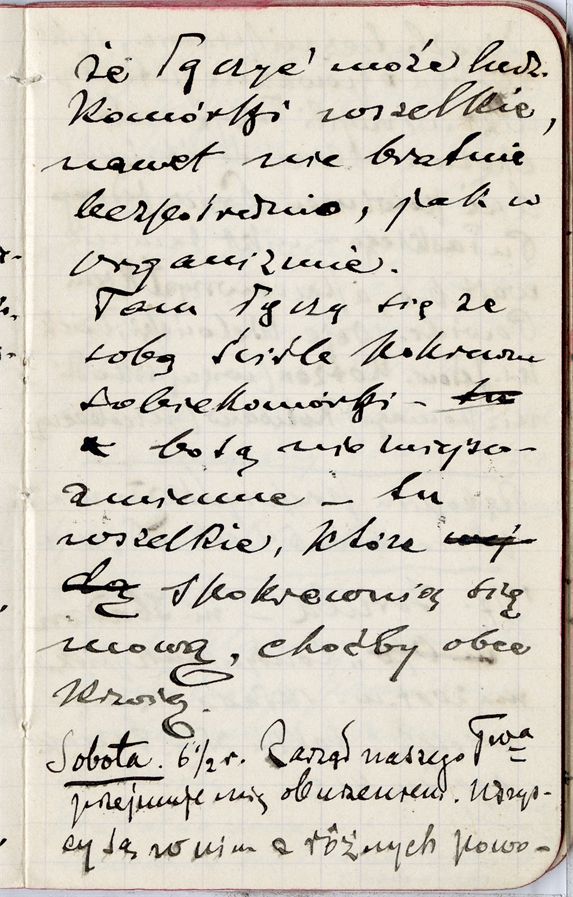 że łączyć może ludz.
komórki wszelkie,
nawet nie bratnie
bezpośrednio, jak w
organizmie.
Tam łączą się ze
sobą ściśle pokrewne
sobie komórki - tu
są nie miejsco-
zmienne - tu
wszelkie, które
spokrewnią się
mową, choćby obce
krwią.
Sobota. 6½ r. Zarząd naszego Twa
przejmuje mię oburzeniem. Wszys-
cy są w nim z różnych powo-